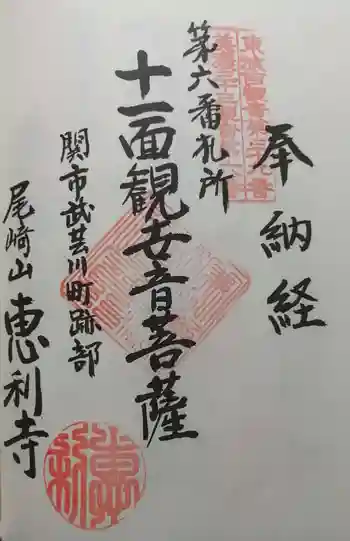 奉納経
第六番札所
十一面観世音菩薩
関市武芸川町跡部
尾﨑山
恵利寺